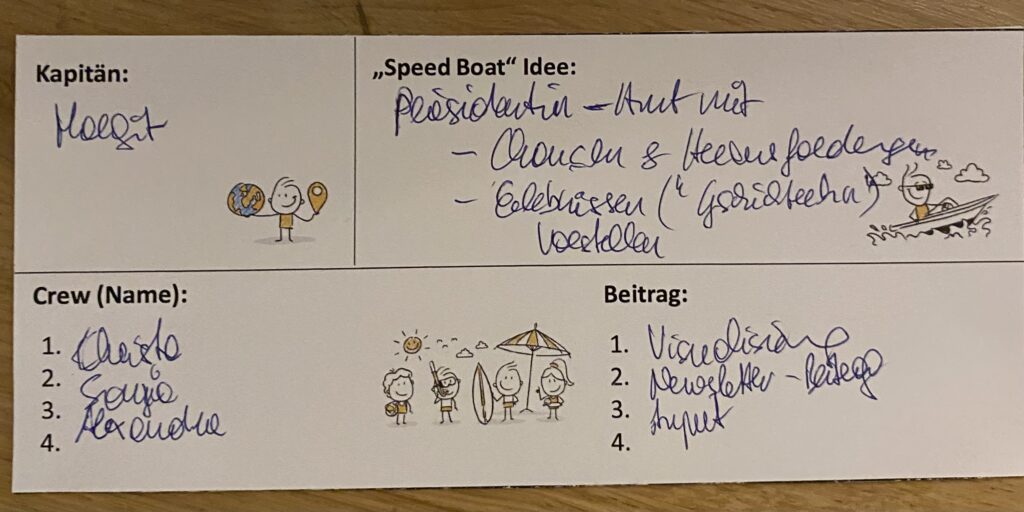 Kapitän:
Margit
„Speed Boat“ Idee:
Präsidentin – Amt mit
– Chancen & Herausforderungen
– Erlebnissen ("Gschichtecha")
vorstellen
Crew (Name):
1. Christa
2. Sonja
3. Alexandra
4.
Beitrag:
1. Visualisierung
2. Newsletter – Beitrag
3. Input
4.